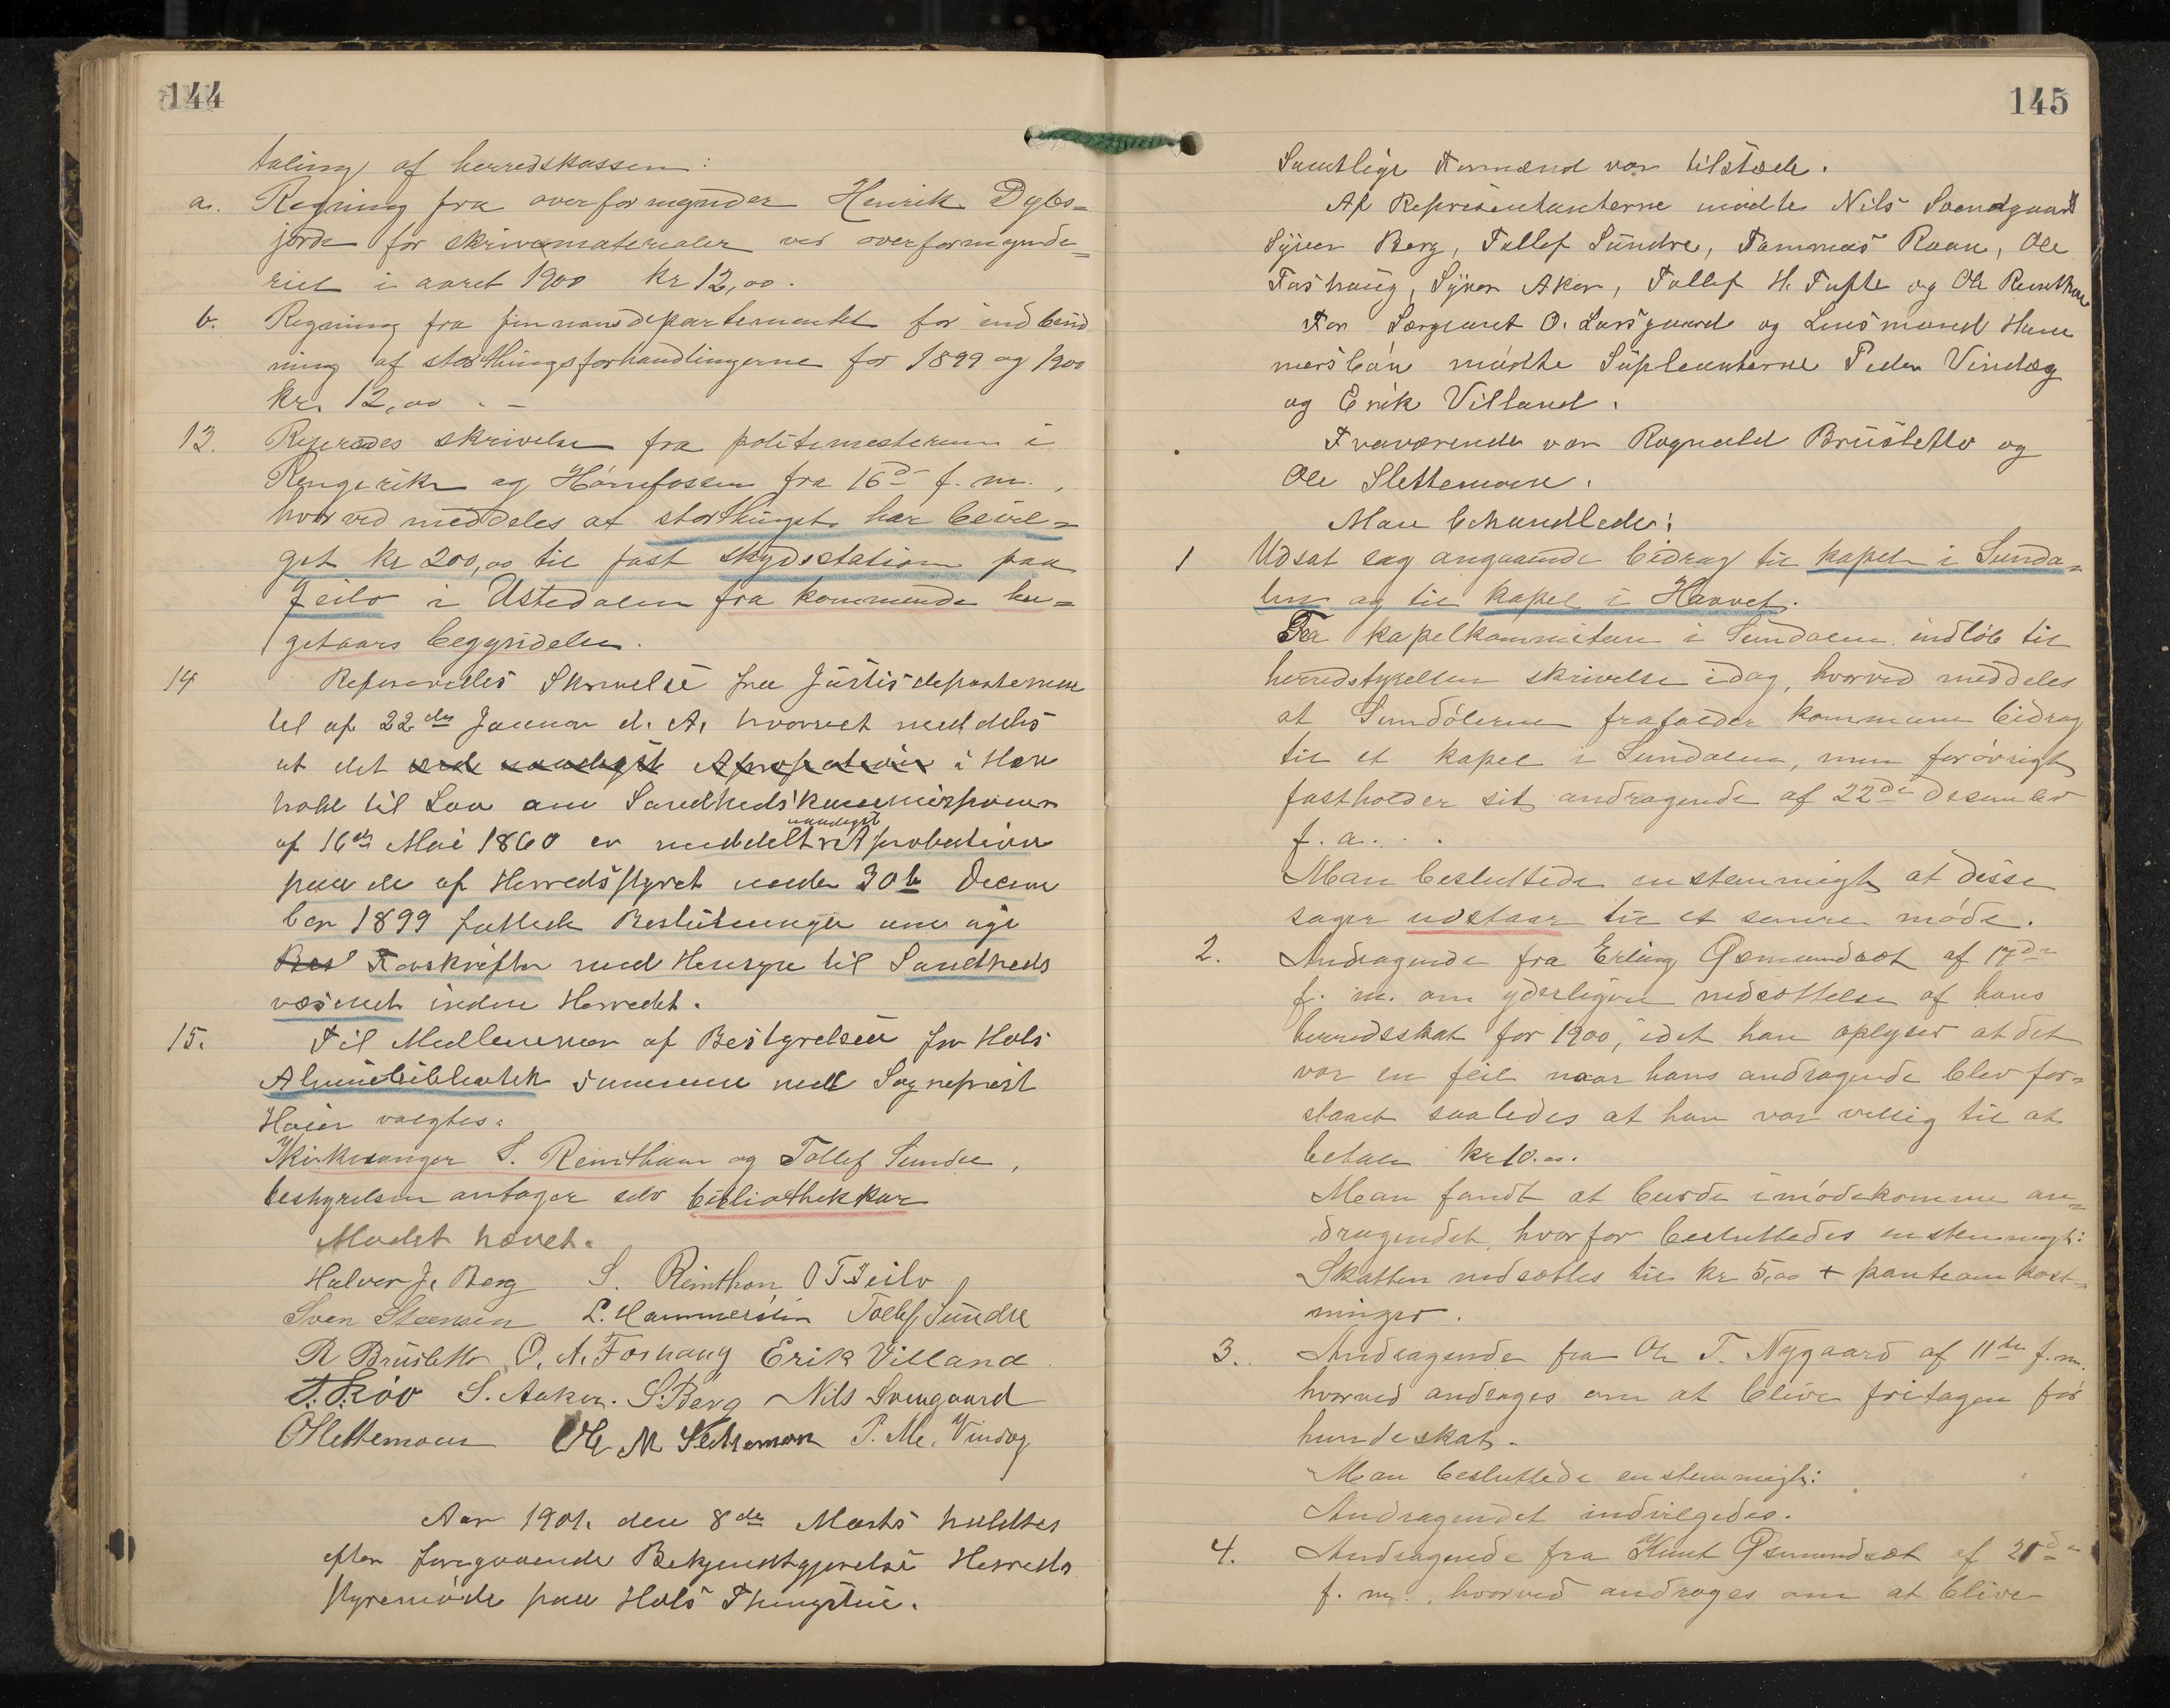 144
taling af herredskassen:
a. Regning fra overformynder Henrik Dyles=
jorde for skrivematerialer ved overformynde=
riet i aaret 1900 kr 12,00.
b. Regning fra finnansdepartementet for indbind
ning af storthingsforhandlingerne for 1899 og 1900
kr. 12,00. –
13. Refereredes skrivelse fra politimesteren i
Ringerike og Hønefossen fra 16de f. m.,
hvorved meddeles at storthinget har bevil=
get kr 200,00 til fast skydsstation paa
Jeilo i Ustedalen fra kommende bu=
getaars begyndelse.
14 Refereredes Skrivelse fra Justisdepartemen
tet af 22de Januar d. A. hvorved meddeles
at det ved naadigst Aprobation i Hen
hold til Lov om Sundhedskommisjoner
af 16de Mai 1860 er meddelt naadigst Aprobation
paa de af Herredsstyret under 30te Decem
ber 1899 fattede Beslutninger om nye
Bes Forskrifter med Hensyn til Sundheds
væsenet inden Herredet.
15. Til Medlemmer af Bestyrelsen for Hols
Almuebibliothek sammen med Sogneprest
Høier valgtes:
Kirkesanger S. Reinthon og Tollef Sundre,
bestyrelsen antager selv bibliothekkar
Mødet hævet.
Halvor J. Berg S. Reinthon O T Jeilo
Sven Steensen L. Hammersbøn Tollef Sundre
R Brusletto O. A. Foshaug Erik Villand
T. Skóv S. Aaker. S. Berg Nils Svengaard
O Slettemoen Ole M Slettemoen P. Vindeg
Aar 1901. den 8de Marts holdtes
efter foregaaende Bekjendtgjørelse Herreds
styremøde paa Hols Thingstue.
145
Samtlige Formænd var tilstæde.
Af Repræsentanterne mødte Nils Svendgaard
Syver Berg, Tollef Sundre, Tommas Raan, Ole
Foshaug, Syver Aker, Tollef H. Tufte og Ole Reinthon
For Sergeant O. Larsgaard og Lensmand Ham
mersbøn mødte Supleanterne Peder Vindeg
og Erik Villand.
Fraværende var Ragnvald Brusletto og
Ole Slettemoen.
Man behandlede:
1 Udsat sag angaaende bidrag til kapel i Sunda=
len og til kapel i Havvet.
Fra kapelkommiteen i Sundalen indløb til
herredstyrelsen skrivelse idag, hvorved meddeles
at Sundølerne frafalder kommune bidrag
til et kapel i Sundalen, men forøvrigt
fastholder sit andragende af 22de Desember
f. a.
Man besluttede enstemmigt, at disse
sager udstaar til et senere møde.
2. Andragende fra Erling Øsmundset af 17de
f. m. om yderligere nedsættelse af hans
herredsskat for 1900, idet han oplyser at det
var en feil naar hans andragende blev for=
staaet saaledes at han var villig til at
betale kr 10.00.
Man fandt at burde imødekomme an=
dragendet, hvorfor besluttedes enstemmigt:
Skatten nedsættes til kr 5,00 + panteomkost=
ninger.
3. Andragende fra Ole T. Nygaard af 11te f. m.
hvorved andrages om at blive fritagen for
hundeskat.
Man besluttede enstemmigt:
Andragendet indvilgedes.
4. Andragende fra Knut Øsmundset af 21de
f. m., hvorved andrages om at blive